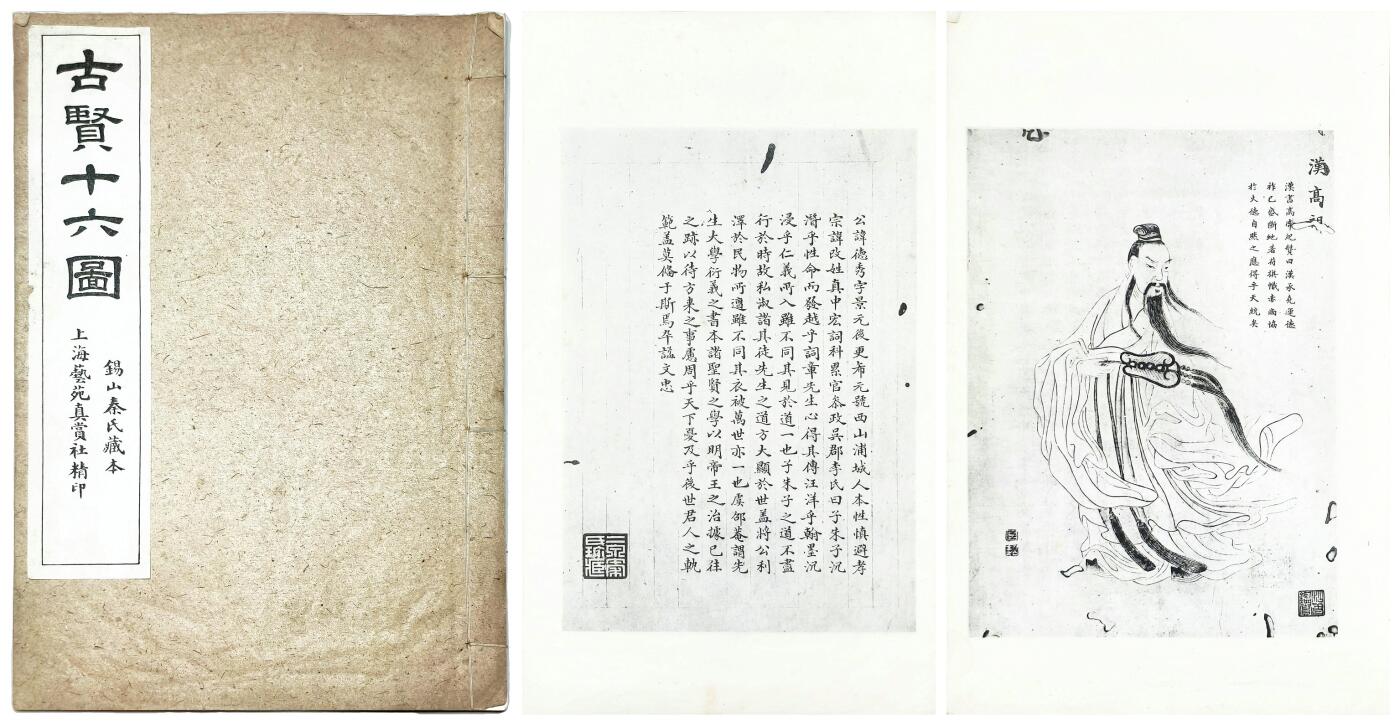 古賢十六圖
錫山秦氏藏本
上海藝苑真賞社精印
公諱德秀字景元後更希元號西山浦城人本性慎避孝
宗諱改姓真中宏詞科累官參政吳郡李氏曰子朱子沉
潛乎性命而發越乎詞章先生心得其傳汪洋乎翰墨沉
浸乎仁義所入雖不同其見於道一也子朱子之道不盡
行於時故私淑諸其徒先生之道方大顯於世蓋將公利
澤於民物所遭雖不同其衣被萬世亦一也虞邵菴謂先
生大學衍義之書本諸聖賢之學以明帝王之治據已往
之跡以待方來之事慮周乎天下憂及乎後世君人之軌
範蓋莫備于斯焉卒諡文忠
漢高祖
漢書高帝紀贊曰漢承堯運德
祚已盛斷蛇著符旗幟赤協
於火德自然之應得乎天統矣